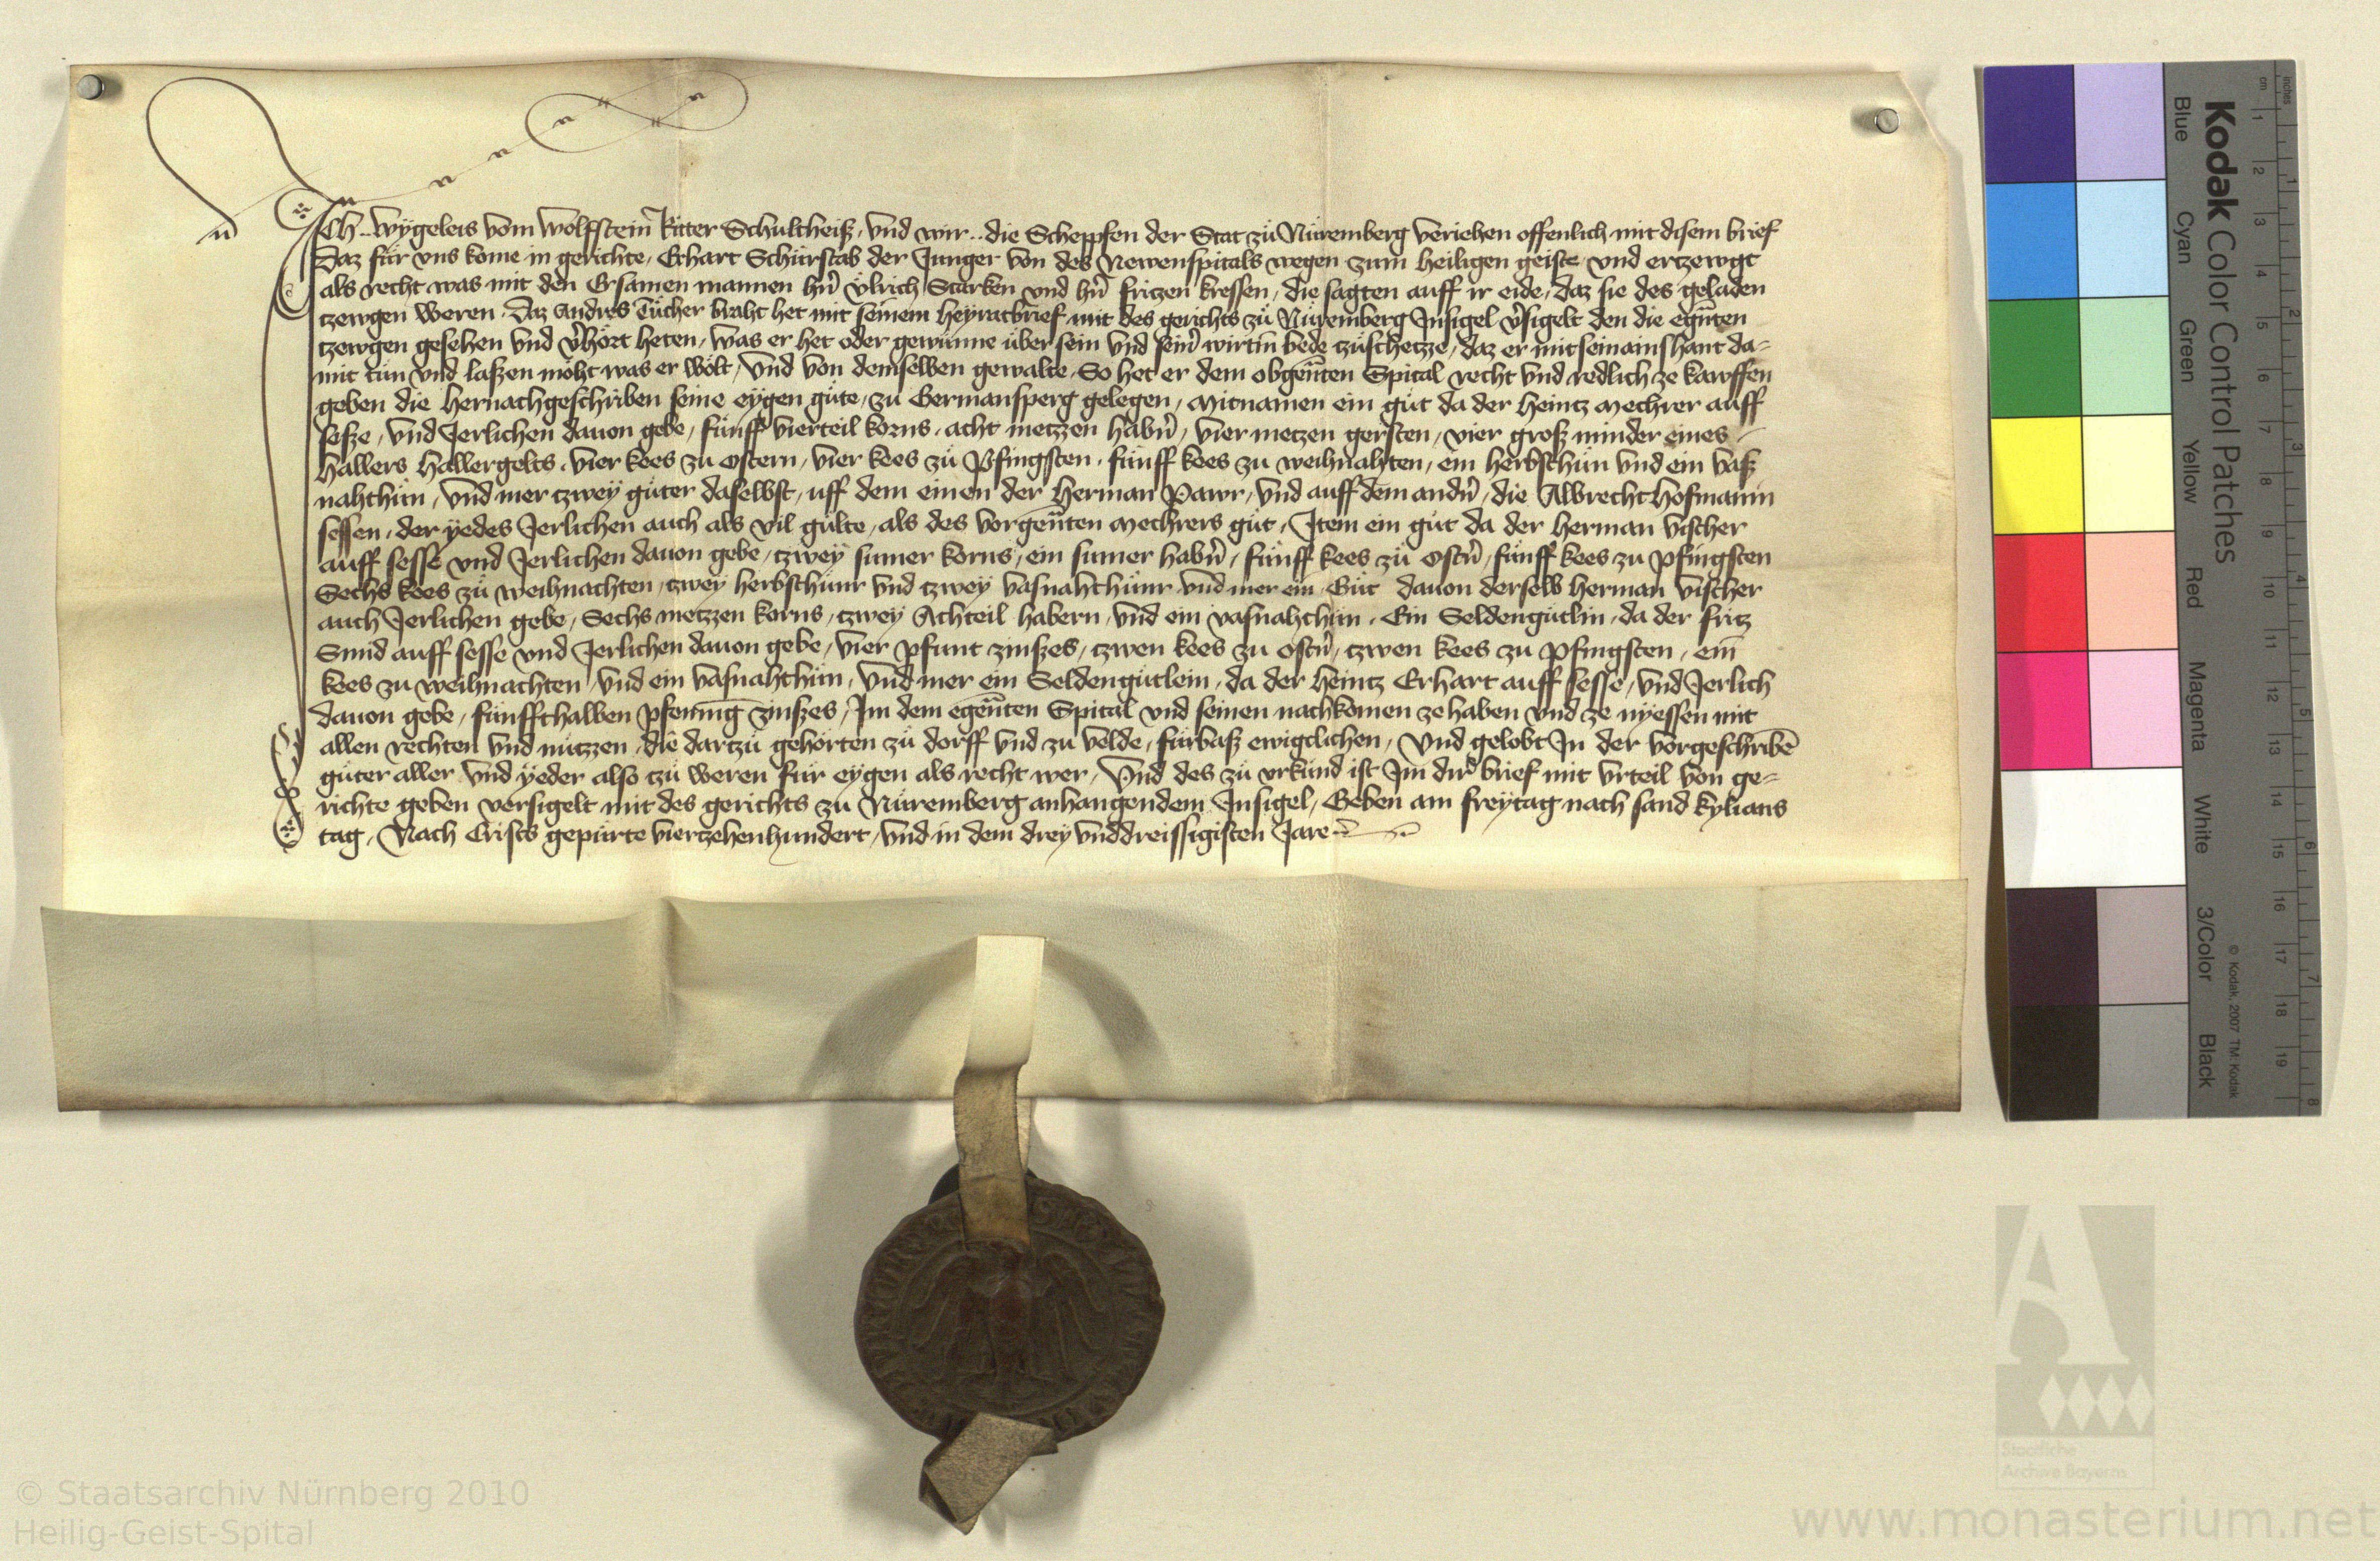 Ich .. Wygeleis vom Wolffstein Ritter Schultheiß, vnd wir .. die Scheppfen der Stat zů Nüremberg veriehen offenlich mit disem brief
Daz für vns kome in gerichte, Erhart Schürstab der Junger von des Newenspitals wegen zum heiligen geiste vnd ertzewgt
als recht was mit den Ersamen mannen hern̄ Vlrich Starken vnd hern̄ fritzen kressen, die sagten auff ir eide, daz sie des geladen
tzewgen weren. Daz Andres Tücher braht het mit seinem heyratbrief mit des gerichts zů Nüremberg Insigel v̉sigelt den die egen̄ten
tzewgen gesehen vnd v̉hört heten, was er het oder gewünne über sein vnd sein̉ wirtin bede zuschetzze, daz er mit sein ains hant da-
mit tůn vnd laßen möht was er wölt, Vnd von demselben gewalte, So het er dem obgen̄ten Spital recht vnd redlich ze kawffen
geben die hernachgeschriben seine eygen gůte, zu Germansperg gelegen, Mitnamen ein gůt da der heintz Mechrer auff
seße, vnd Jerlichen dauon gebe, fünff vierteil korns, acht metzzen habn̉, vier metzen gersten, vier groß minder eines
hallers hallergelts, vier kees zu ostern, vier kees zů Pfingsten, fünff kees zu weihnahten, ein herbsthůn vnd ein vaß
nahthůn, Vnd mer tzwey gůter daselbst, uff dem einen der Herman Pawr, vnd auff dem andn̉, die Albrecht Hofmanin
sessen, der yedes Jerlichen auch als vil gülte, als des vorgen̄ten Mechrers gůt, Item ein gůt da der Herman vischer
auff sesse vnd Jerlichen dauon gebe, tzwey sumer korns, ein sumer habn̉, fünff kees zů ostn̉, fünff kees zu pfingsten
Sechs kees zů weihnachten, tzwey herbsthůnr vnd tzwey vasnahthůnr vnd mer ein Gůt dauon derselb Herman vischer
auch Jerlichen gebe, Sechs metzzen korns, tzwey Achteil habern, vnd ein vasnahthůn. Ein Seldengůtlin, da der fritz
Smid auff sesse vnd Jerlichen dauon gebe, vier pfunt zinßes, tzwen kees zu ostn̉, tzwen kees zu pfingsten, ein
kees zu weihnachten, vnd ein vasnahthůn, Vnd mer ein Seldengůtlein, da der heintz Erhart auff sesse, vnd Jerlich
dauon gebe, fünffthalben pfennīg zinßes, Im dem egen̄ten Spital vnd seinen nachkomen ze haben vnd ze nyessen mit
allen rechten vnd nützzen, die dartzů gehorten zů dorff vnd zu velde, fürbaß ewigclichen, Vnd gelobt In der vorgeschribē
gůter aller vnd yeder also zů weren für eygen als recht wer, Vnd des zů vrkünd ist Im dir̉ brief mit vrteil von ge-
richte geben versigelt mit des gerichts zu Nüremberg anhangendem Insigel, Geben am freytag nach sand kylians
tag, Nach Crists gepürte viertzehenhundert, vnd in dem drey vnddreissigisten Jare
Kodak Color Control Patches
Blue Cyan Green Yellow Red Magenta White 3/Color Black
© Kodak, 2007 TM: Kodak
inches 1 2 3 4 5 6 7 8
cm 1 2 3 4 5 6 7 8 9 10 11 12 13 14 15 16 17 18 19
Staatliche
Archive Bayerns
© Staatsarchiv Nürnberg 2010
Heilig-Geist-Spital
www.monasterium.net